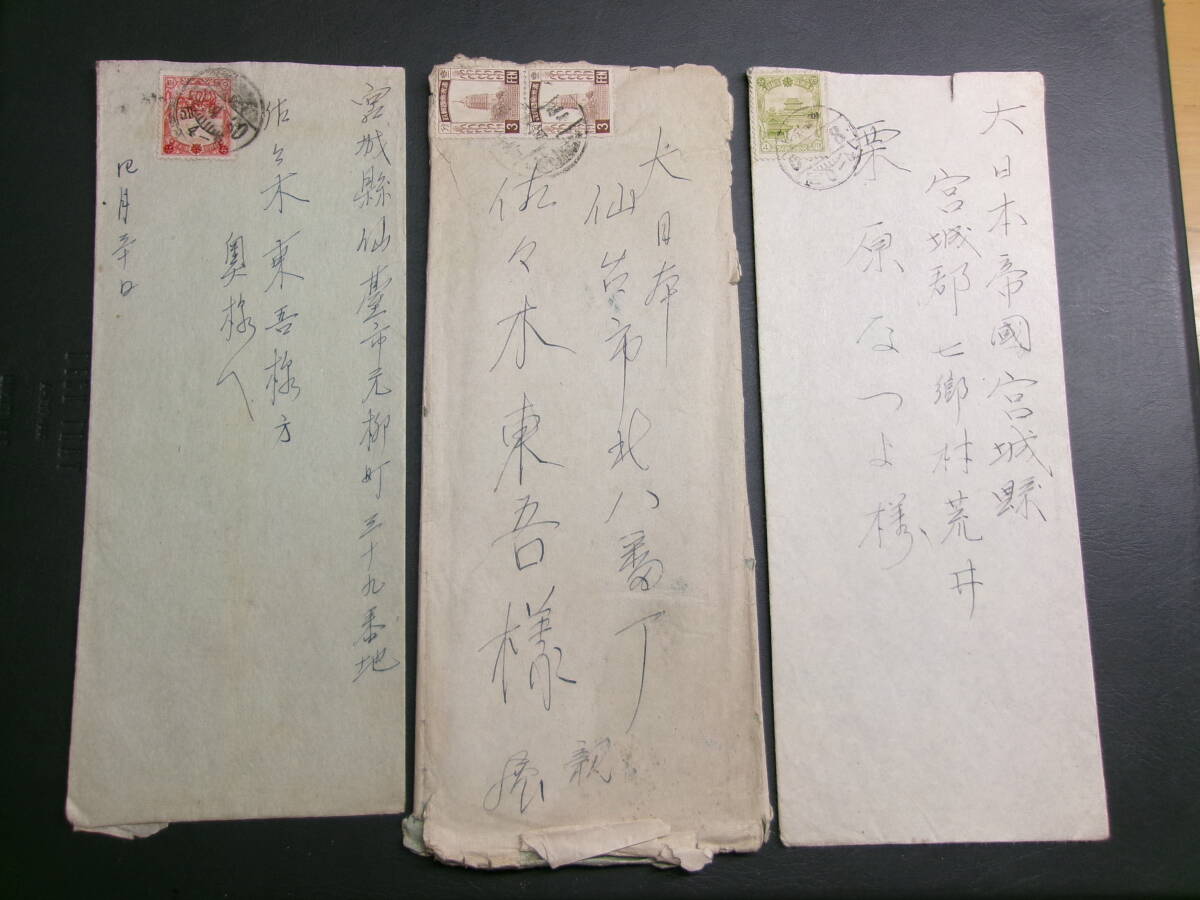 宮城縣仙臺市元柳町三十九番地
佐々木東吾様方
奥様へ
四月三十日
大日本
仙台市北八番丁
佐々木東吾様
親展
3
3
大日本帝國宮城縣
宮城郡七郷村荒井
栗原なつよ様